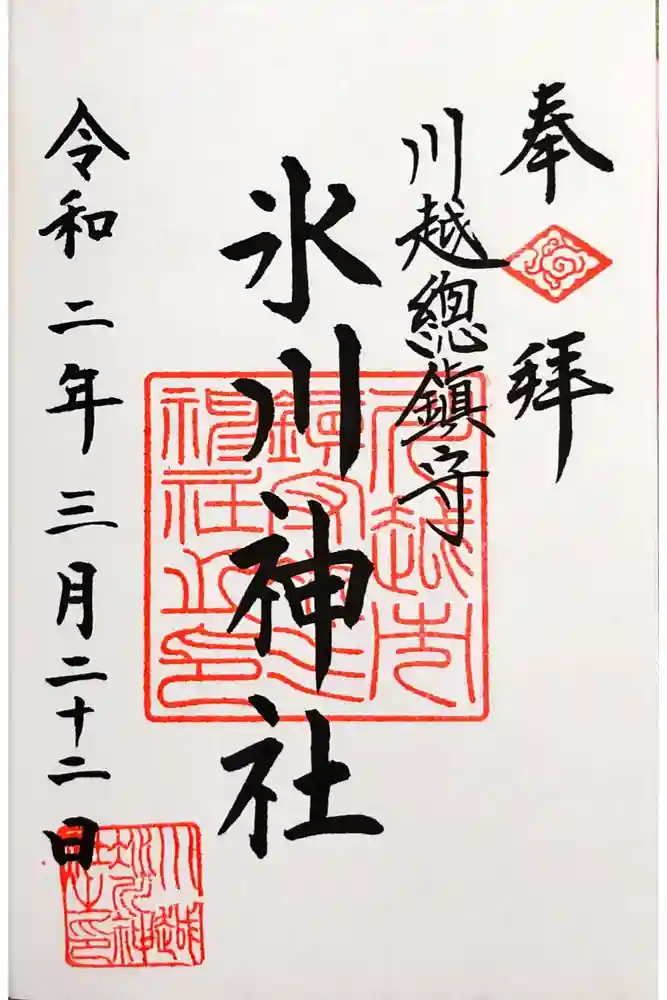 奉拝
川越總鎮守
氷川神社
令和二年三月二十二日